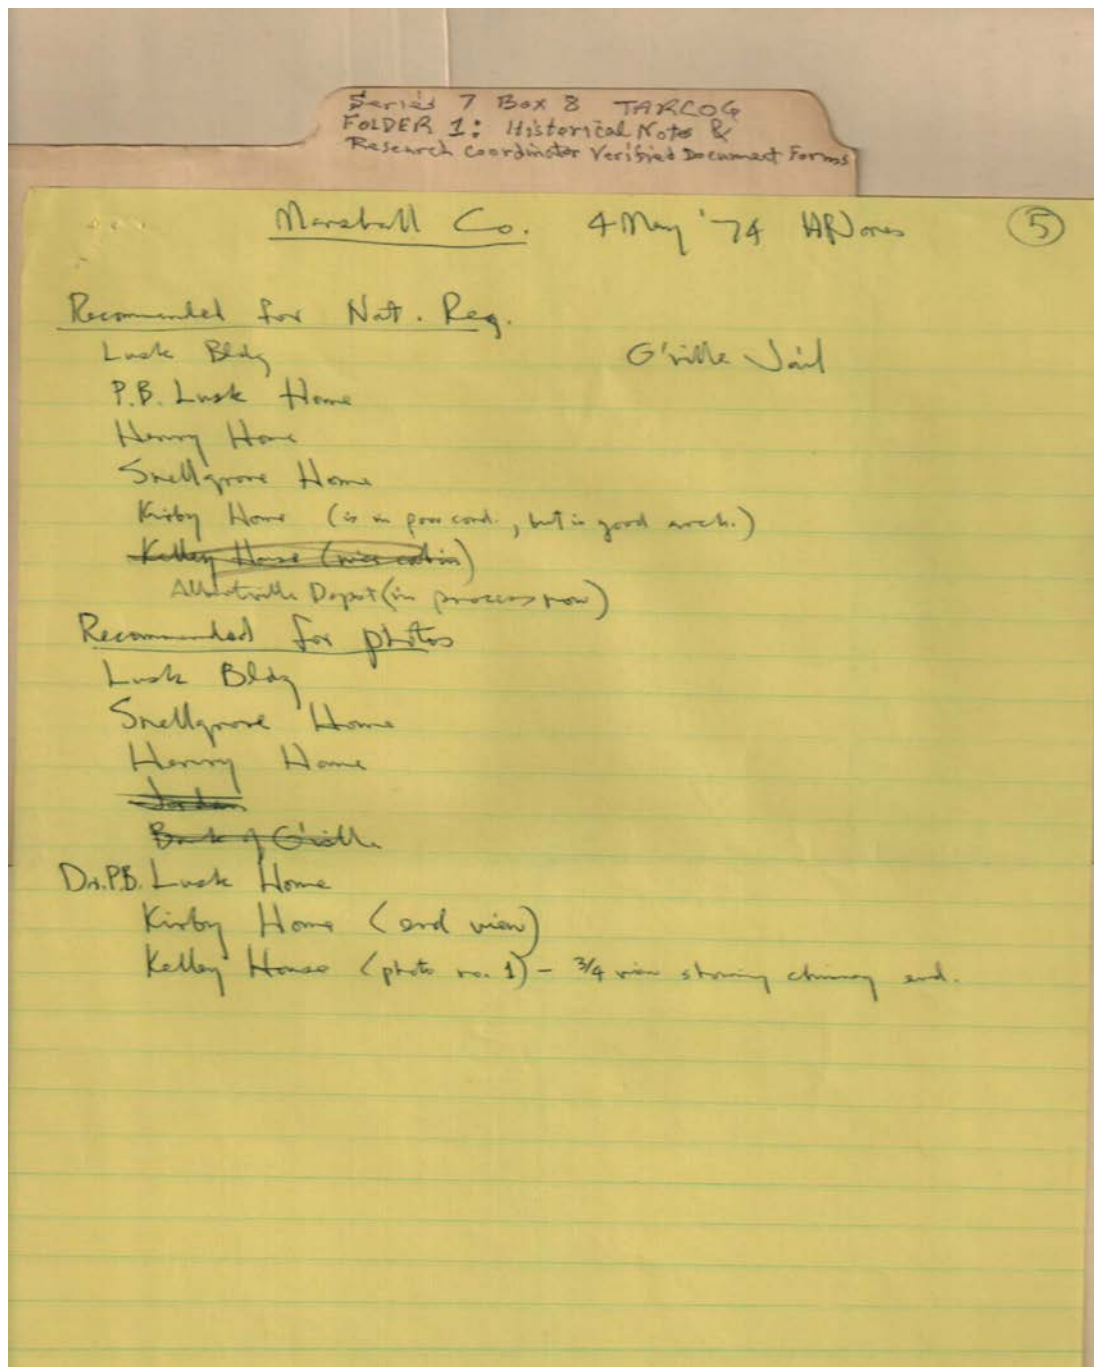 Series 7 Box 8 TARCOG
FOLDER 1: Historical Note &
Research Coordinator Verified Document Forms
Marshall Co. 4 May '74 HPJones 5
Recommended for Nat. Reg.
Lusk Bldg G'ville Jail
P.B. Lusk Home
Henry Home
Snellgrove Home
Kirby Home (is in poor cond., but is good arch.)
Kelley House (nice cabin)
Albertville Depot (in process now)
Recommended for photos
Lusk Bldg
Snellgrove Home
Henry Home
Jordan
Bank of G'ville
Dr. P.B. Lusk Home
Kirby Home (end view)
Kelley House (photo no. 1) - 3/4 view showing chimney end.